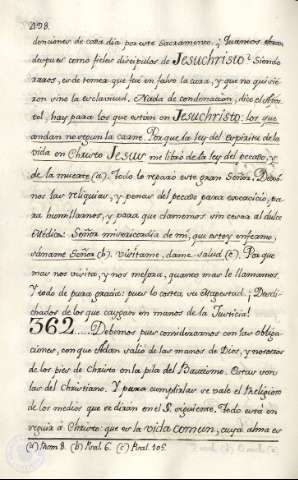 298.
denciones de cada dia por este Sacramento. ¡Quantos
despues como fieles discipulos de Jesuchristo! Siendo
raros, es de temer que fué en falso la cura, y que no quisie-
ron sino la esclavitud. Nada de condenacion, dice el Após-
tol, hay para los que están en Jesuchristo: los que
andan no segun la carne. Porque la ley del Espíritu de la
vida en Christo Jesus me libró de la ley del pecado, y
de la muerte (a). Todo lo reparó este gran Señor. Dexó-
nos las reliquias, y penas del pecado para exercicio, pa-
ra humillarnos, y para que clamemos sin cesar al dulce
Médico: Señor misericordia de mí, que estoy enfermo,
sáname Señor (b). visítame, dame salud (c). Porque
mas nos visita, y nos mejora, quanto mas le llamamos.
Y todo de pura gracia: pues lo costea su Magestad. ¡Desdi-
chados de los que caygan en manos de la Justicia!
362.... Debemos pues considerarnos con las obliga-
ciones, con que Adan salió de las manos de Dios, y nosotros
de los pies de Christo en la pila del Bautismo. Estas son
las del Christiano. Y para cumplirlas se vale el Religioso
de los medios que se dirán en el §. siguiente. Todo está en
seguir á Christo: que es la vida comun, cuya alma es
(a) Rom 8. (b) Psal. 6. (c) Psal. 105.